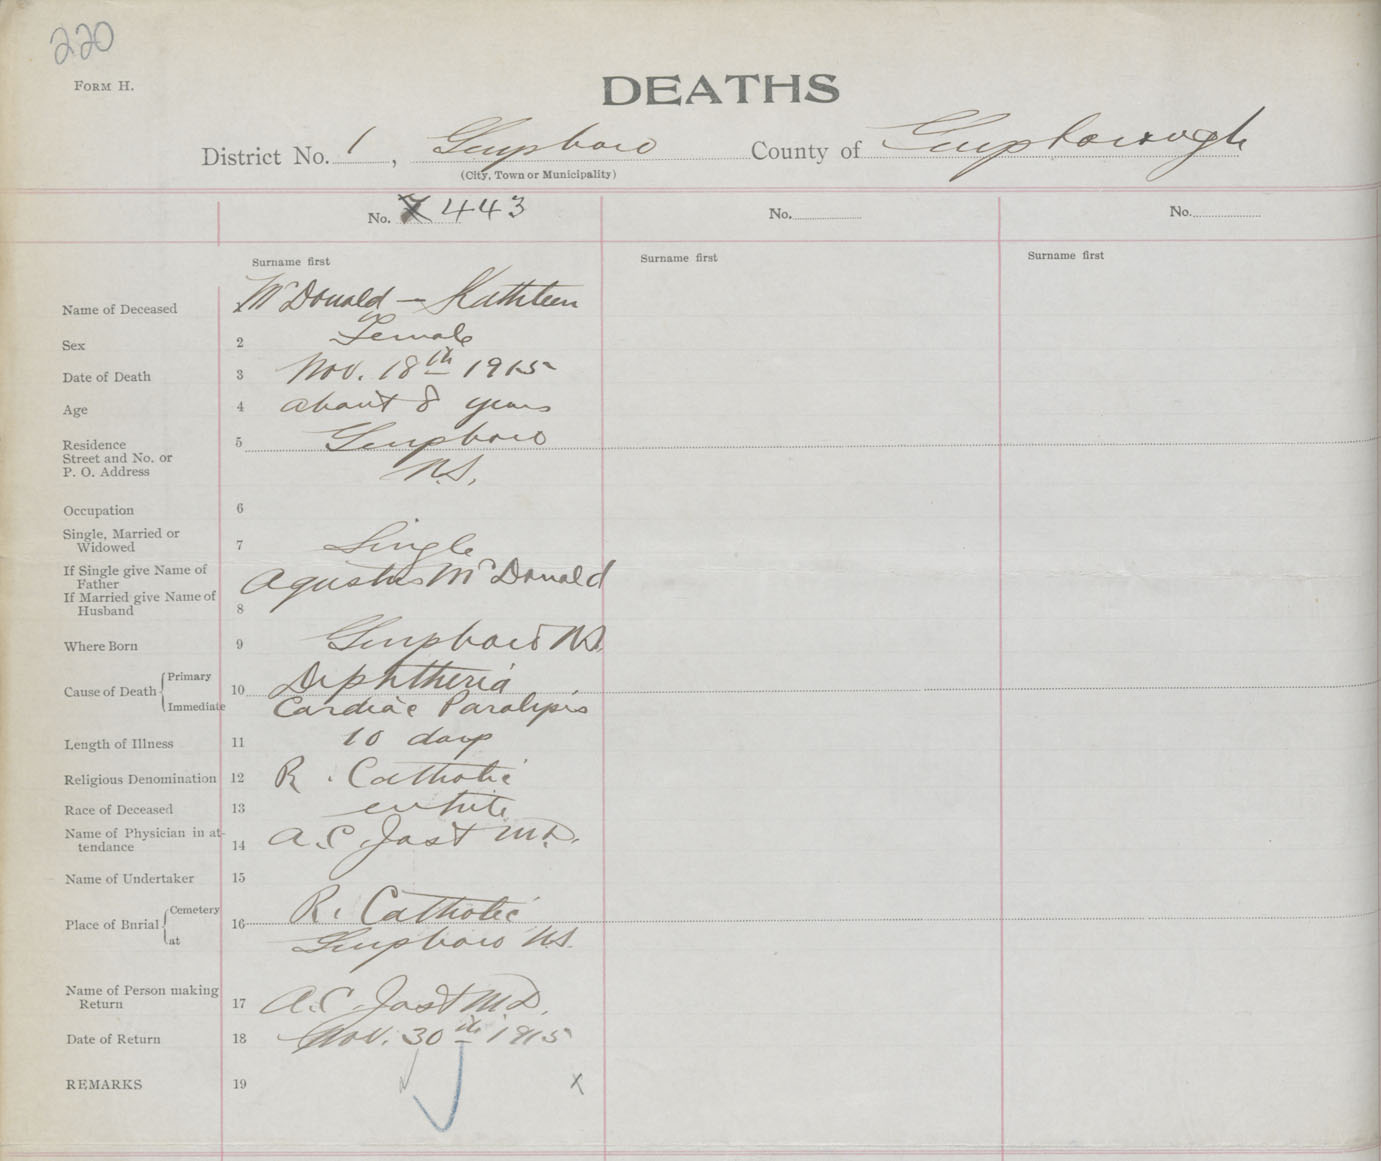 220
FORM H.
DEATHS
District No. 1, Guysboro County of Guysborough
(City, Town or Municipality)
No. 443 No. No.
Surname first Surname first Surname first
Name of Deceased McDonald — Kathleen
Sex 2 Female
Date of Death 3 Nov. 18th 1915
Age 4 about 8 years
Residence 5 Guysboro
Street and No. or
P. O. Address N.S.
Occupation 6
Single, Married or
Widowed 7 Single
If Single give Name of
Father Agustus McDonald
If Married give Name of
Husband 8
Where Born 9 Guysboro N.S.
Cause of Death Primary 10 Diphtheria
Immediate Cardiac Paralysis
Length of Illness 11 10 days
Religious Denomination 12 R. Catholic
Race of Deceased 13 white
Name of Physician in at-
tendance 14 A.C. Jost M.D.
Name of Undertaker 15
Place of Burial Cemetery 16 R. Catholic
at Guysboro N.S.
Name of Person making
Return 17 A.C. Jost M.D.
Date of Return 18 Nov. 30th 1915
REMARKS 19 x